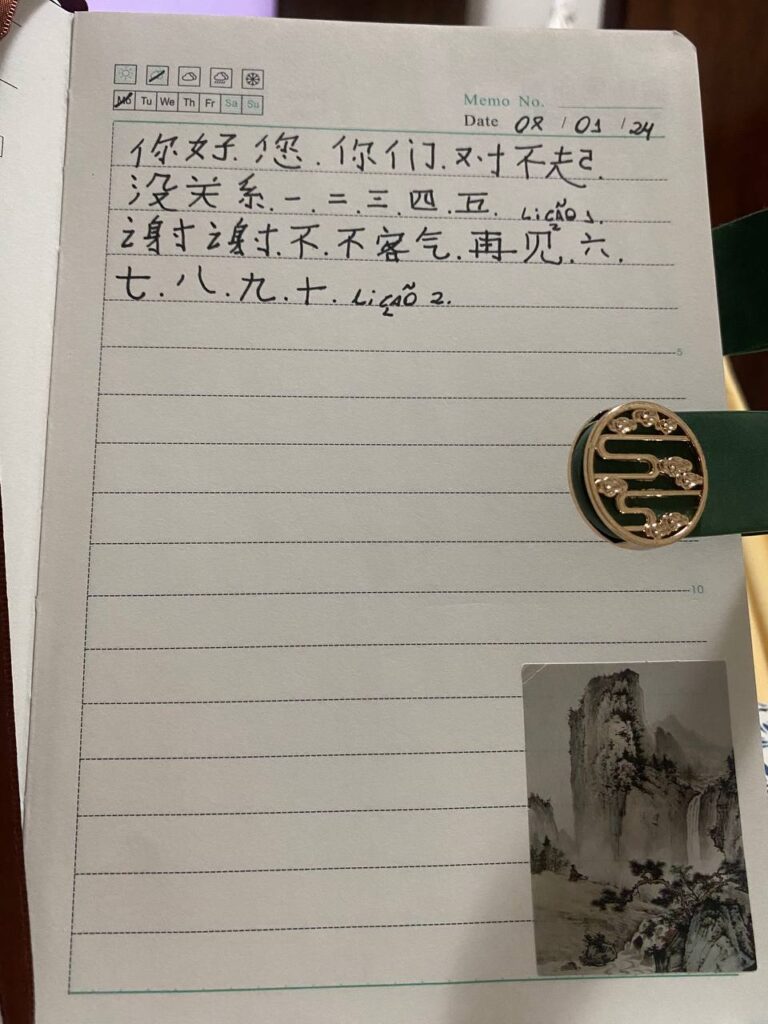 Memo No.
Mo Tu We Th Fr Sa Su
Date 08 / 01 / 24
你好. 您. 你们. 对不起.
没关系. 一. 二. 三. 四. 五. LiçÃO 1.
谢谢. 不. 不客气. 再见. 六.
七. 八. 九. 十. LiçÃO 2.
5
10